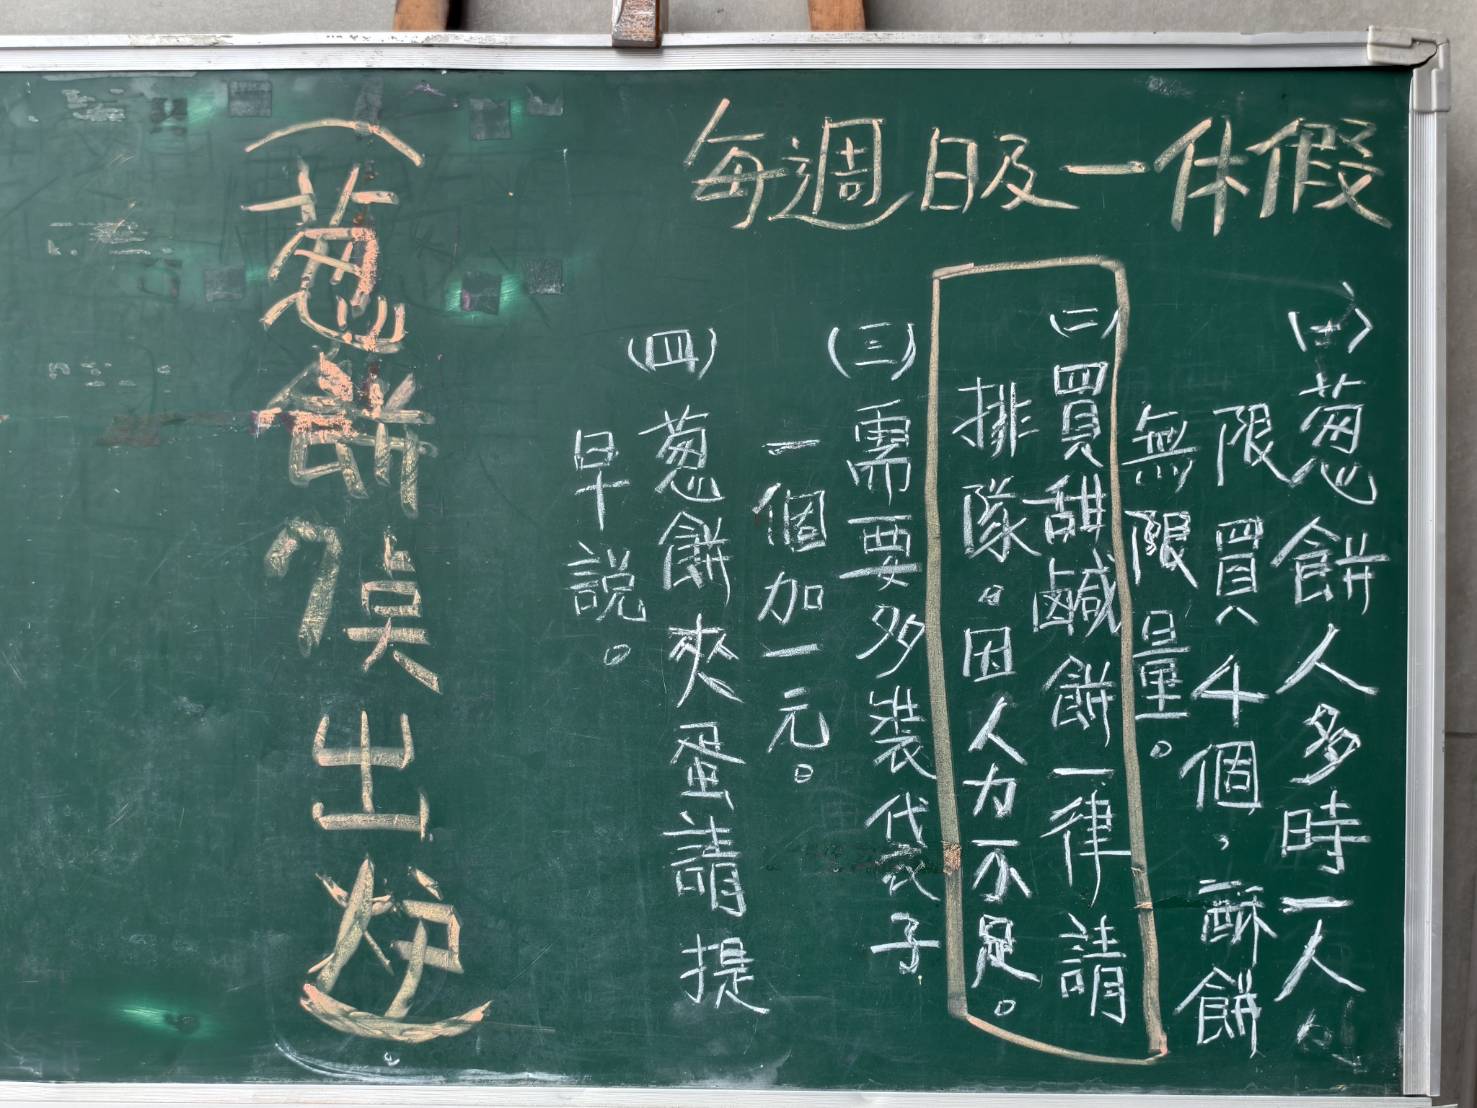 每週日及一休假
(一)葱餅人多時一人
限買4個,酥餅
無限量。
(二)買甜鹹餅一律請
排隊。因人力不足。
(三)需要多裝袋子
一個加一元。
(四)葱餅夾蛋請提
早說。
(葱餅7奌出炉)